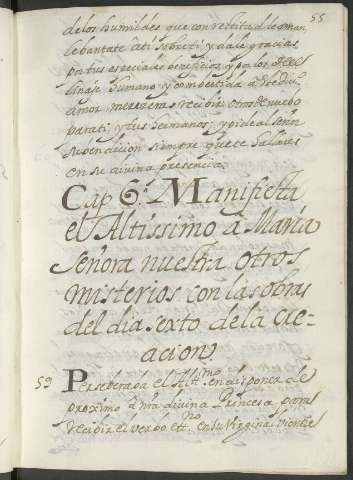 55
de los humildes que con rectitud le aman
lebantate a ti sobre ti y dale gracias
por tus especiales beneficios y por los de el
linaje humano y combertida a este divino
amor mereceras recibir otros de nuebo
para ti, y tus hermanos; y pide al Señor
su bendicion siempre que te hallares
en su divina presencia.
Cap 6. Manifiesta
el Altissimo a Maria
Señora nuestra otros
misterios con las obras
del dia sexto de la cre-
acion
59 Perseberaba el Altmo en disponer de
proximo a nra divina Princesa para
recibir el verbo etno en su Virginal vientre